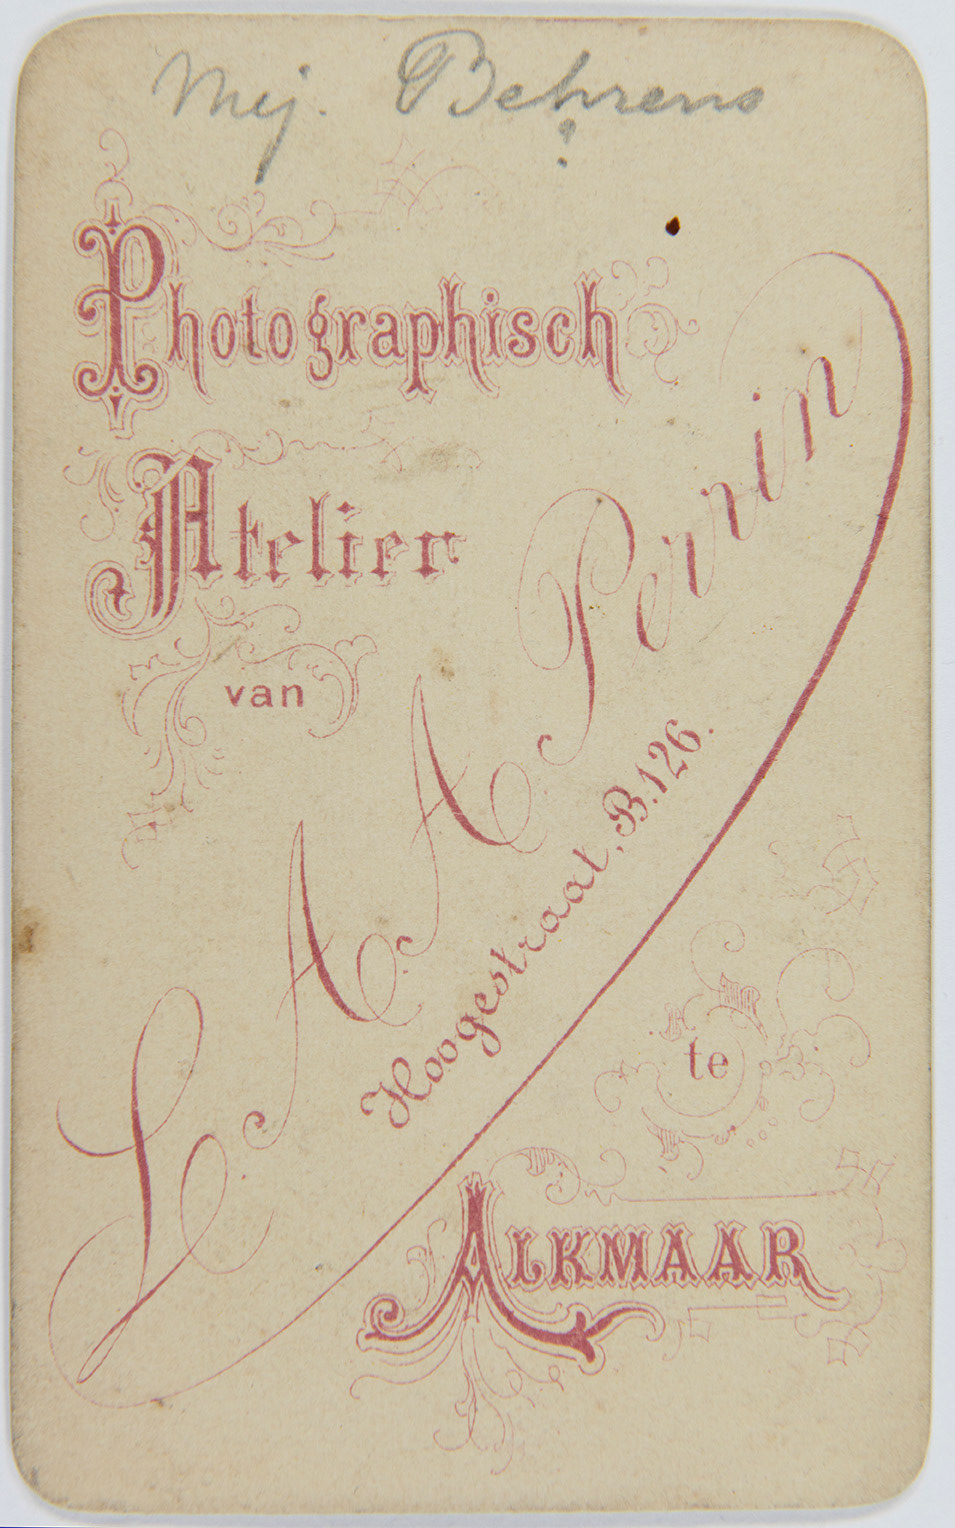 Mej. Behrens
?
Photographisch
Atelier
van
L A A Perrin
Hoogestraat, B. 126.
te
ALKMAAR